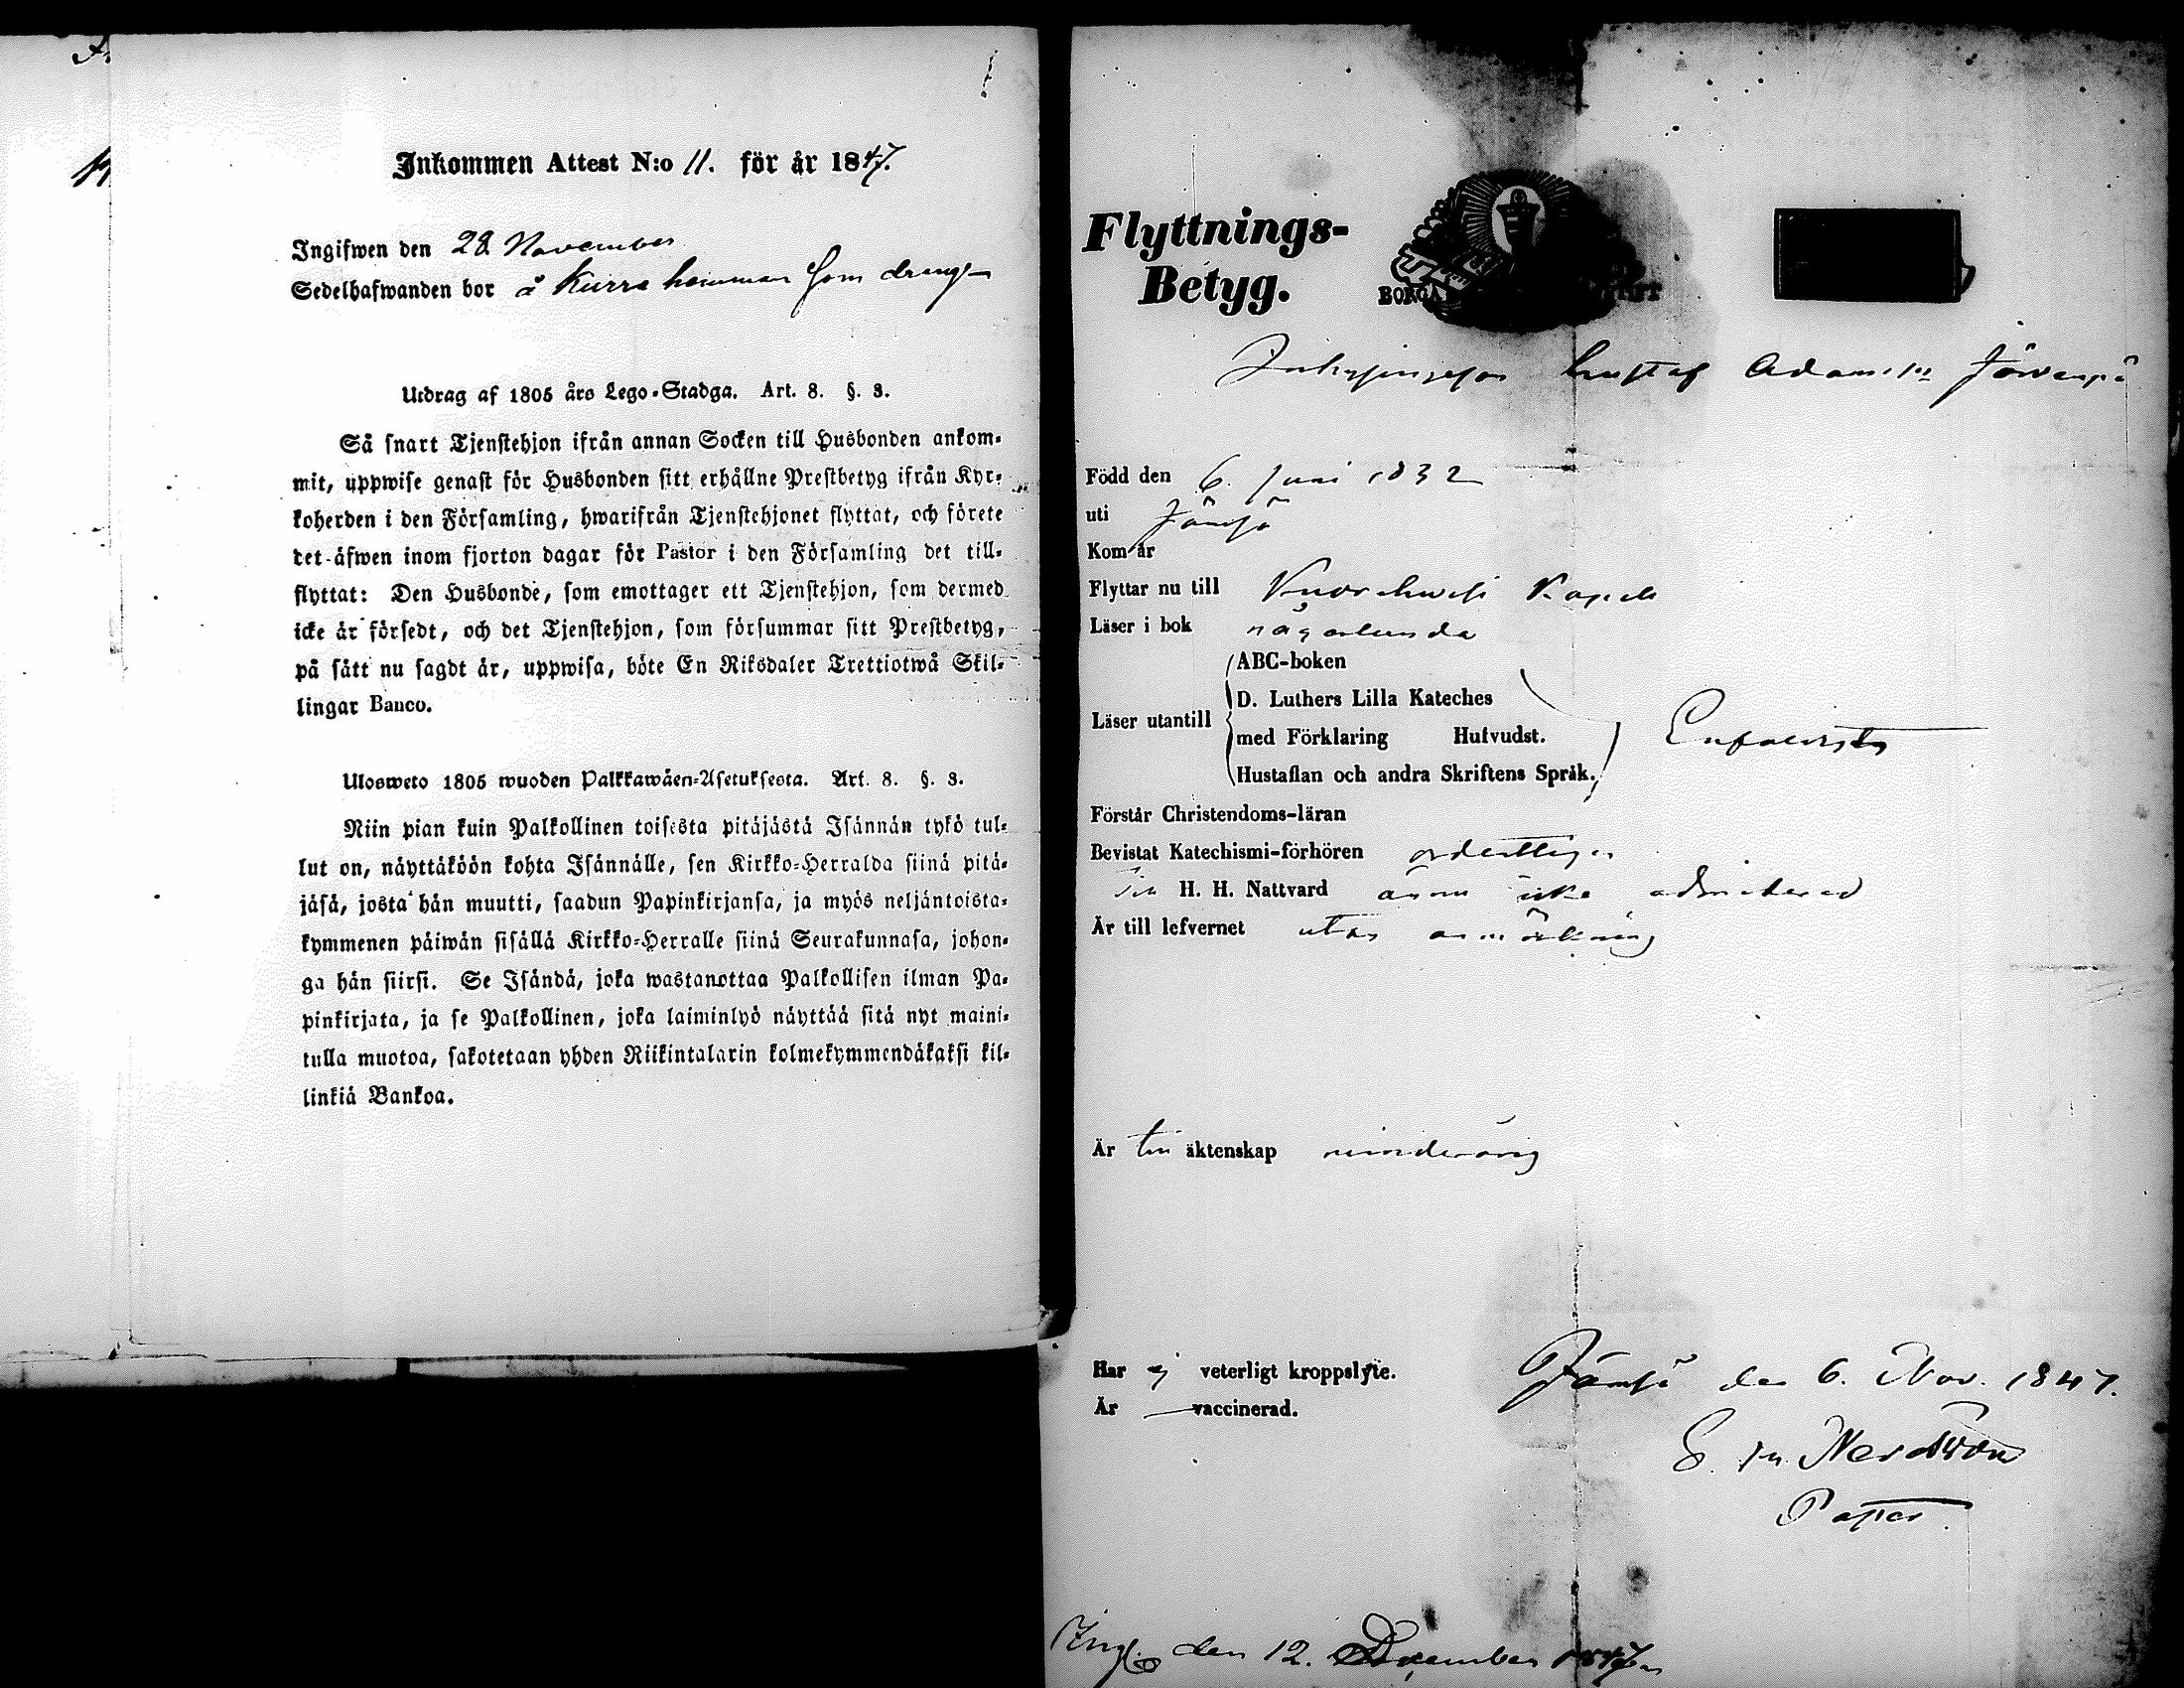 Inkommen Attest N:o 11. för år 1847.
Ingifwen den 28 November
Sedelhafwanden bor å Kurra hemman som dreng
Utdrag af 1805 års Lego-Stadga. Art. 8. §. 3.
Så snart Tjenstehjon ifrån annan Socken till Husbonden ankom-
mit, uppwise genast för Husbonden sitt erhållne Prestbetyg ifrån Kyr-
koherden i den Församling, hwarifrån Tjenstehjonet flyttat, och förete
det äfwen inom fjorton dagar för Pastor i den Församling det till-
flyttat: Den Husbonde, som emottager ett Tjenstehjon, som dermed
icke är försedt, och det Tjenstehjon, som försummar sitt Prestbetyg,
på sätt nu sagdt är, uppwisa, böte En Riksdaler Trettiotwå Skil-
lingar Banco.
Ulosweto 1805 wuoden Palkkawäen-Asetuksesta. Art. 8. §. 3.
Niin pian kuin Palkollinen toisesta pitäjästä Isännän tykö tul-
lut on, näyttäköön kohta Isännälle, sen Kirkko-Herralda siinä pitä-
jäsä, josta hän muutti, saadun Papinkirjansa, ja myös neljäntoista-
kymmenen päiwän sisällä Kirkko-Herralle siinä Seurakunnasa, johon-
ga hän siirsi. Se Isändä, joka wastanottaa Palkollisen ilman Pa-
pinkirjata, ja se Palkollinen, joka laiminlyö näyttää sitä nyt maini-
tulla muotoa, sakotetaan yhden Riikintalarin kolmekymmendäkaksi kil-
linkiä Bankoa.
Flyttnings-
Betyg.
BORGÅ
Gustaf Adamsson Järvenpä
Född den 6. Juni 1832
uti Jämsä
Kom år
Flyttar nu till Kuorehwesi Kapell
Läser i bok någorlunda
ABC-boken
D. Luthers Lilla Kateches
Läser utantill
med Förklaring Hufvudst.
Hustaflan och andra Skriftens Språk.
Enfaldigt
Förstår Christendoms-läran
Bevistat Katechismi-förhören ordentligen
Till H. H. Nattvard ännu icke admitterad
Är till lefvernet utan anmärkning
Är till äktenskap minderårig
Har ej veterligt kroppslyte.
Är vaccinerad.
Jämsä den 6. Nov. 1847.
Pastor.
Ingl. den 12. December 1847